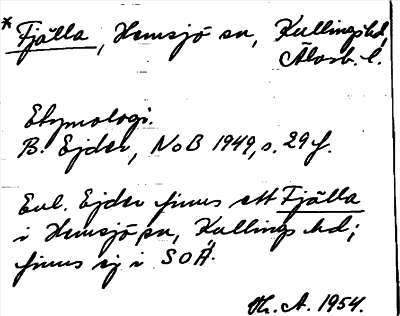 * Fjälla, Hemsjö sn, Kullings hd,
Älvsb. l.
Etymologi.
B. Ejder, NoB 1949, s. 29 f.
Enl. Ejder finns ett Fjälla
i Hemsjö sn, Kullings hd;
finns ej i SOÄ.
Th. A. 1954.